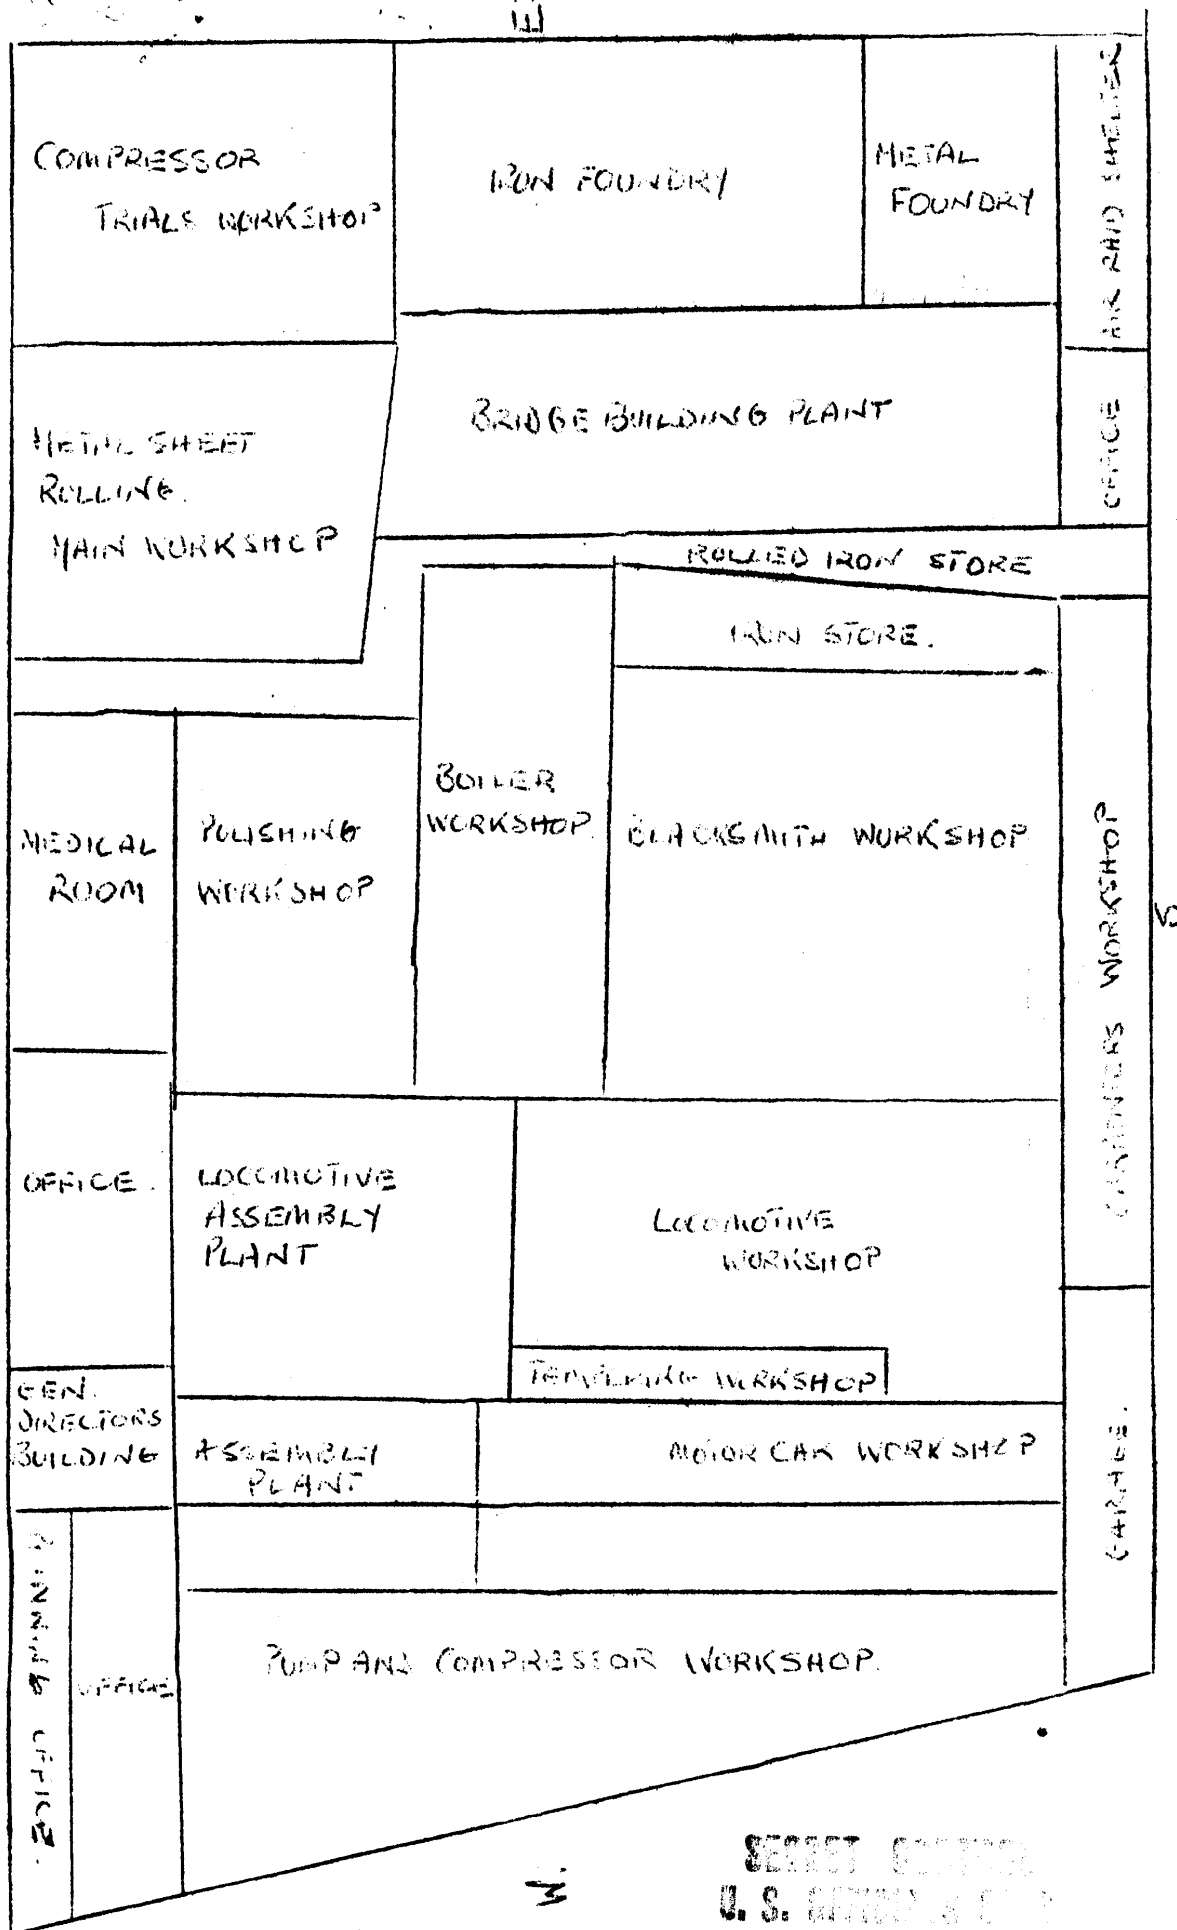 E
COMPRESSOR
TRIALS WORKSHOP
IRON FOUNDRY
METAL
FOUNDRY
AIR RAID SHELTER
METAL SHEET
ROLLING.
MAIN WORKSHOP
BRIDGE BUILDING PLANT
OFFICE
ROLLED IRON STORE
IRON STORE.
MEDICAL
ROOM
POLISHING
WORKSHOP
BOILER
WORKSHOP.
BLACKSMITH WORKSHOP
CARPENTERS WORKSHOP
S
OFFICE.
LOCOMOTIVE
ASSEMBLY
PLANT
LOCOMOTIVE
WORKSHOP
WORKSHOP
GEN.
DIRECTORS
BUILDING
ASSEMBLY
PLANT.
MOTOR CAR WORKSHOP
GARAGE.
OFFICE.
OFFICE
PUMP AND COMPRESSOR WORKSHOP.
W
SECRET
U. S.